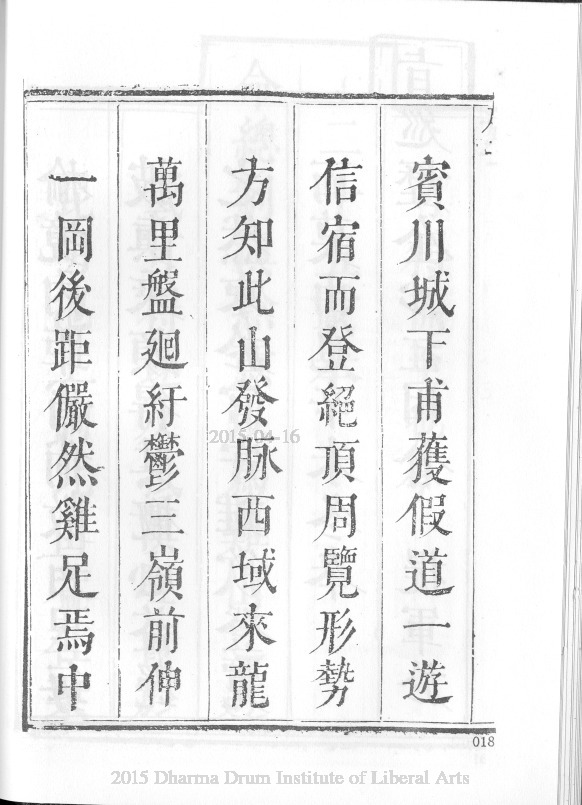 賓川城下甫獲假道一遊
信宿而登絕頂周覽形勢
方知此山發脉西域來龍
萬里盤廻紆鬱三嶺前伸
一岡後距儼然雞足焉中
018
2015-04-16
2015 Dharma Drum Institute of Liberal Arts